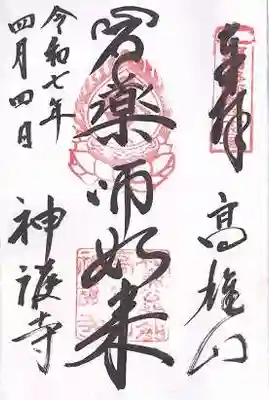 奉拝
高雄山
薬師如来
令和七年
四月四日
神護寺